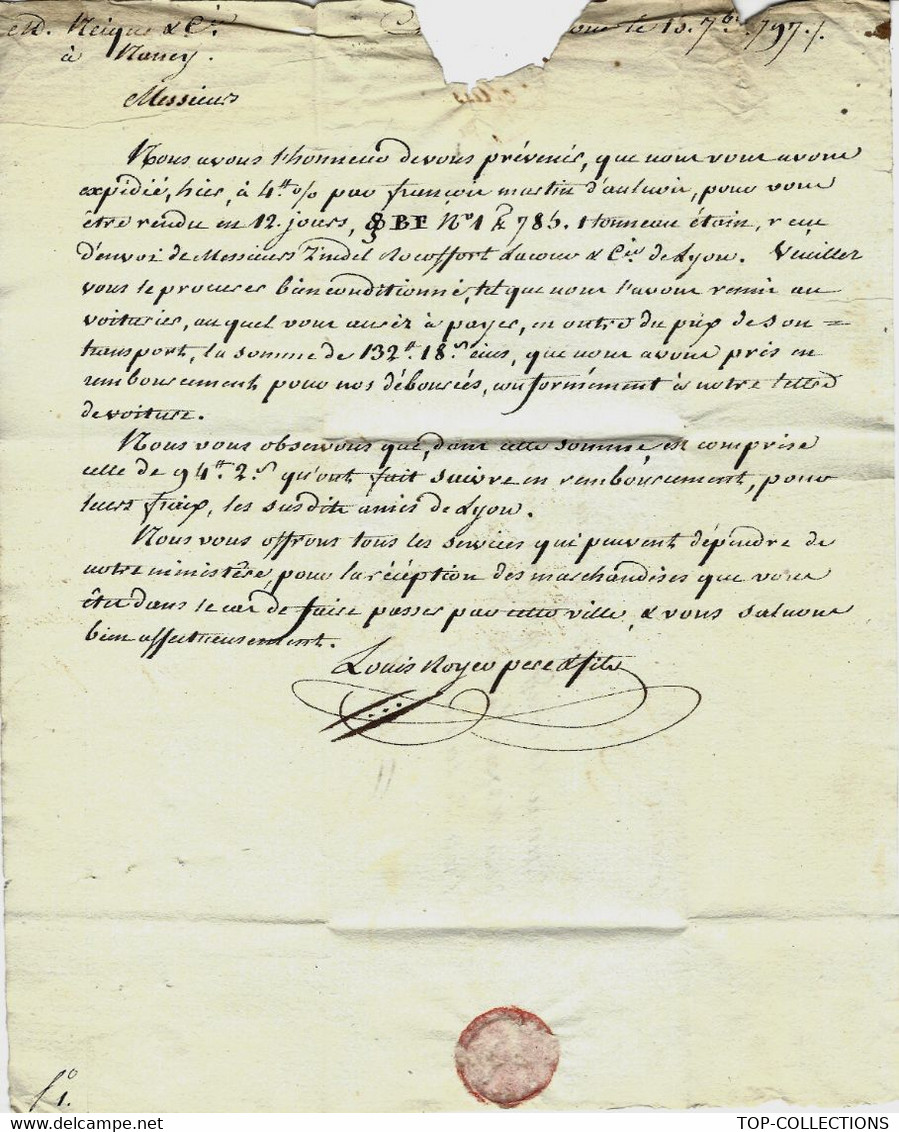 à Nancy. le 15. 7bre. 1797.
Messieurs
Nous avons l'honneur de vous prévenir, que nous vous avons
expédié, hier, à 4.tt % par françois martin d'aulnoir, pour vous
être rendu en 12. jours, BF N° 1 785. 1 tonneau étain, reçu
d'envoi de Messieurs Zindel Rocoffort Lacour & Cie. de Lyon. Veuillez
vous le procurer bien conditionné, tel que nous l'avons remis au
voiturier, au quel vous aurez à payer, en outre du prix de son =
transport, la somme de 132tt. 18s. que nous avons pris en
remboursement pour nos déboursés, conformément à notre lettre
de voiture.
Nous vous observons que, dans cette somme, est comprise
celle de 94tt. 2s. qu'ont fait suivre en remboursement, pour
leurs fraix, les susdits amis de Lyon.
Nous vous offrons tous les services qui peuvent dépendre de
notre ministère, pour la réception des marchandises que vous
êtes dans le cas de faire passer par cette ville, & vous saluons
bien affectueusement.
Louis Royer pere & fils
f° 1.
TOP-COLLECTIONS